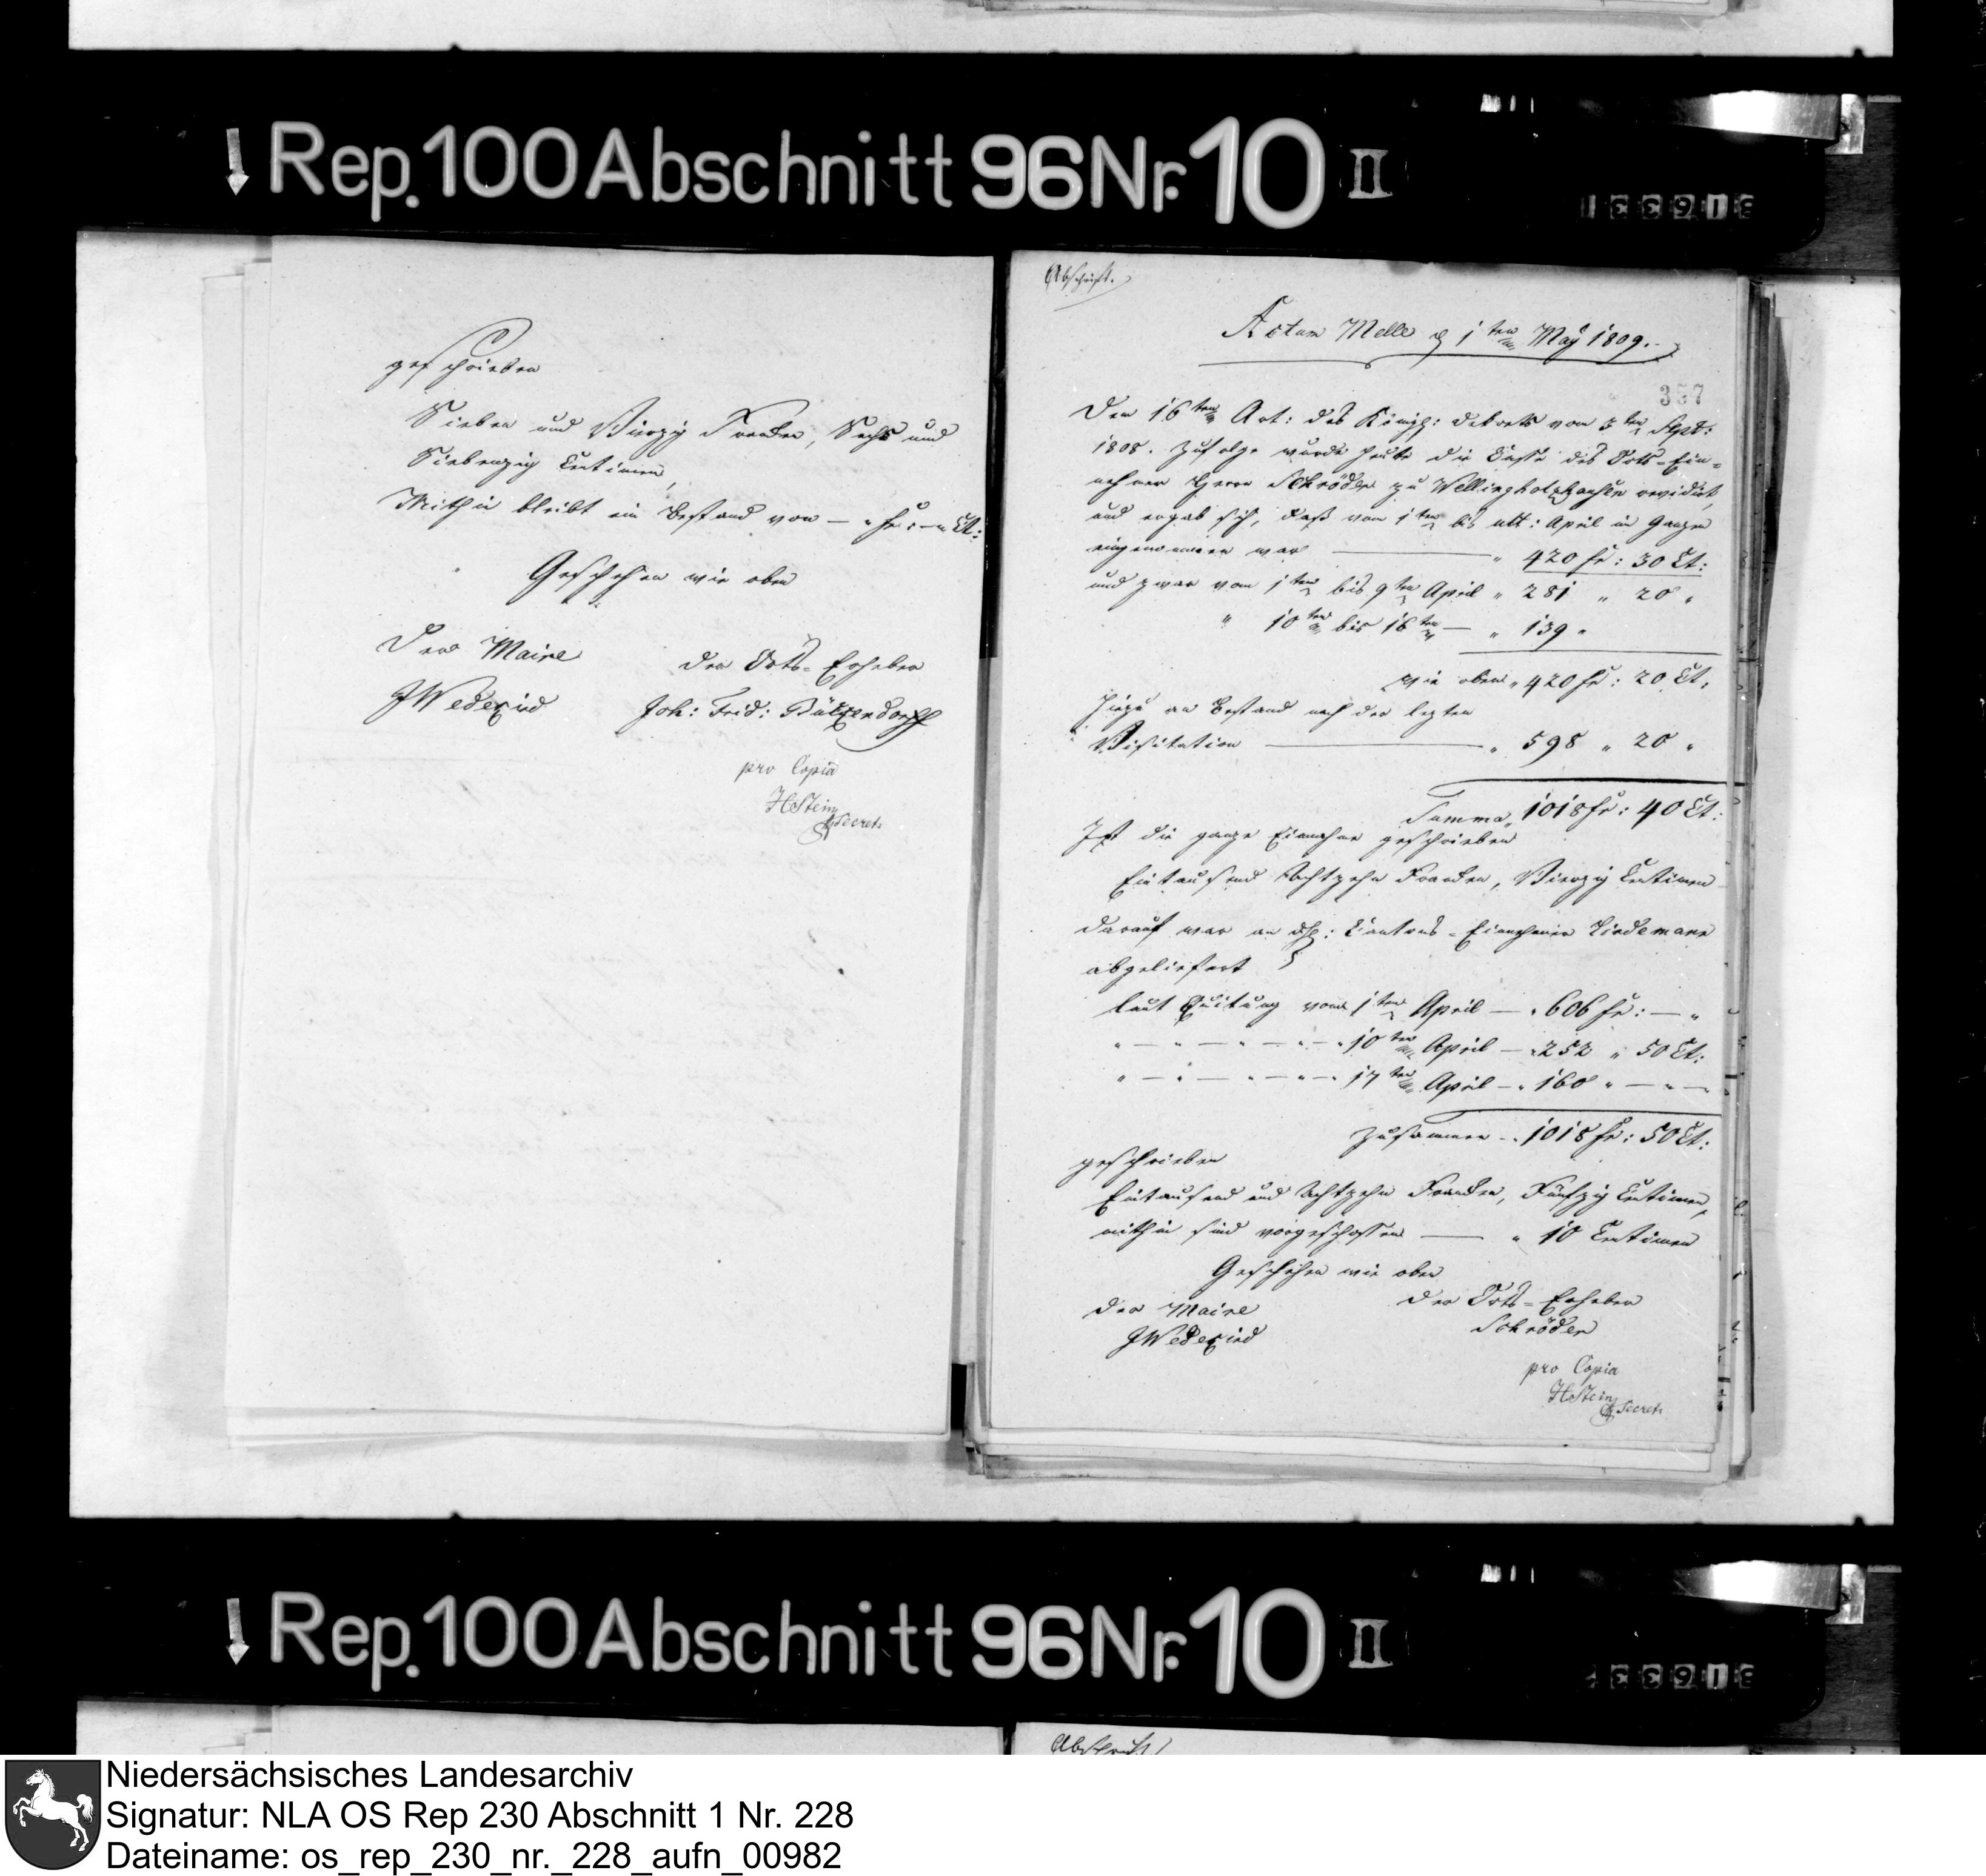 Rep. 100 Abschnitt 96 Nr. 10 II
geschrieben
Sieben und Vierzig Franken, Sechs und
Siebenzig Centimen,
Mithin bleibt ein Bestand von — " fr: — " Ct:
Geschehen wie oben
Der Maire
der Orts-Erheber
Joh: Frid: Bültzendorff
pro Copia
HStein
Secret.
Abschrift.
Actum Melle d 1ten May 1809.
357
Den 16ten Art: des Königl: Dekrets vom 5ten Sept:
1808. zufolge wurde heute die Casse des Orts-Ein-
nehmer Herrn Schröder zu Wellingholzhausen revidirt,
und ergab sich, daß vom 1ten bis ult: April in Ganzen
eingenommen war — " 420 fr: 30 Ct:
und zwar vom 1ten bis 9ten April " 281 " 20 "
" 10ten bis 16ten — " 139 "
wie oben " 420 fr: 20 Ct.
Hiezu an Bestand nach der lezten
Visitation — " 598 " 20 "
Summa " 1018 fr: 40 Ct:
Ist die ganze Einnahme geschrieben
Eintausend Achtzehn Franken, Vierzig Centimen
darauf war an Cantons-Einnehmer Lindemann
abgeliefert
laut Quitung vom 1ten April — " 606 fr: — "
" — " — " — " — " 10ten April — " 252 " 50 Ct:
" — " — " — " — " 17ten April — " 160 " — " —
zusammen — " 1018 fr: 50 Ct:
geschrieben
Eintausend und Achtzehn Franken, Fünfzig Centimen,
mithin sind vorgeschossen — " 10 Centimen
Geschehen wie oben
der Maire
der Orts-Erheber
Schröder
pro Copia
HStein
Secret.
Rep. 100 Abschnitt 96 Nr. 10 II
Abschrift
Niedersächsisches Landesarchiv
Signatur: NLA OS Rep 230 Abschnitt 1 Nr. 228
Dateiname: os_rep_230_nr._228_aufn_00982